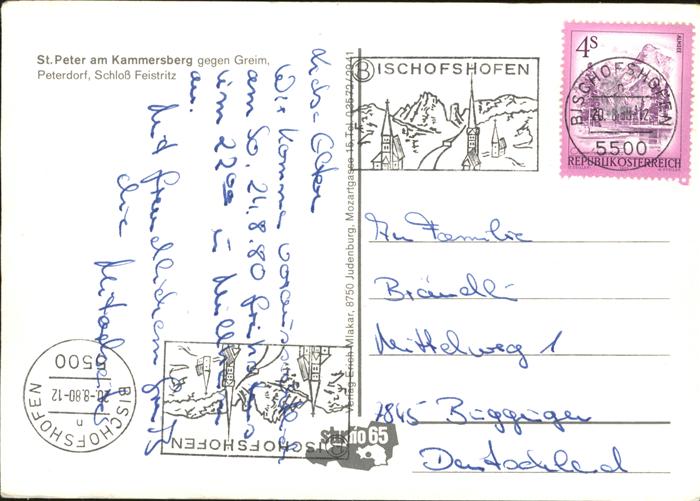 St. Peter am Kammersberg gegen Greim,
Peterdorf, Schloß Feistritz
Liebe Eltern
Wir kommen voraussichtlich
am So. 24.8.80
um 22 00 in Müllheim
an.
Mit freundlichem Gruß
die
Verlag Erich Mlakar, 8750 Judenburg, Mozartgasse 15, Tel. 03572/2941
BISCHOFSHOFEN
4S
ALMSEE
REPUBLIK ÖSTERREICH
BISCHOFSHOFEN
n
20.-8.80-12
5500
An Familie
Brändli
Mittelweg 1
7845 Buggingen
Deutschland
5500
20.-8.80-12
n
BISCHOFSHOFEN
BISCHOFSHOFEN
studio 65